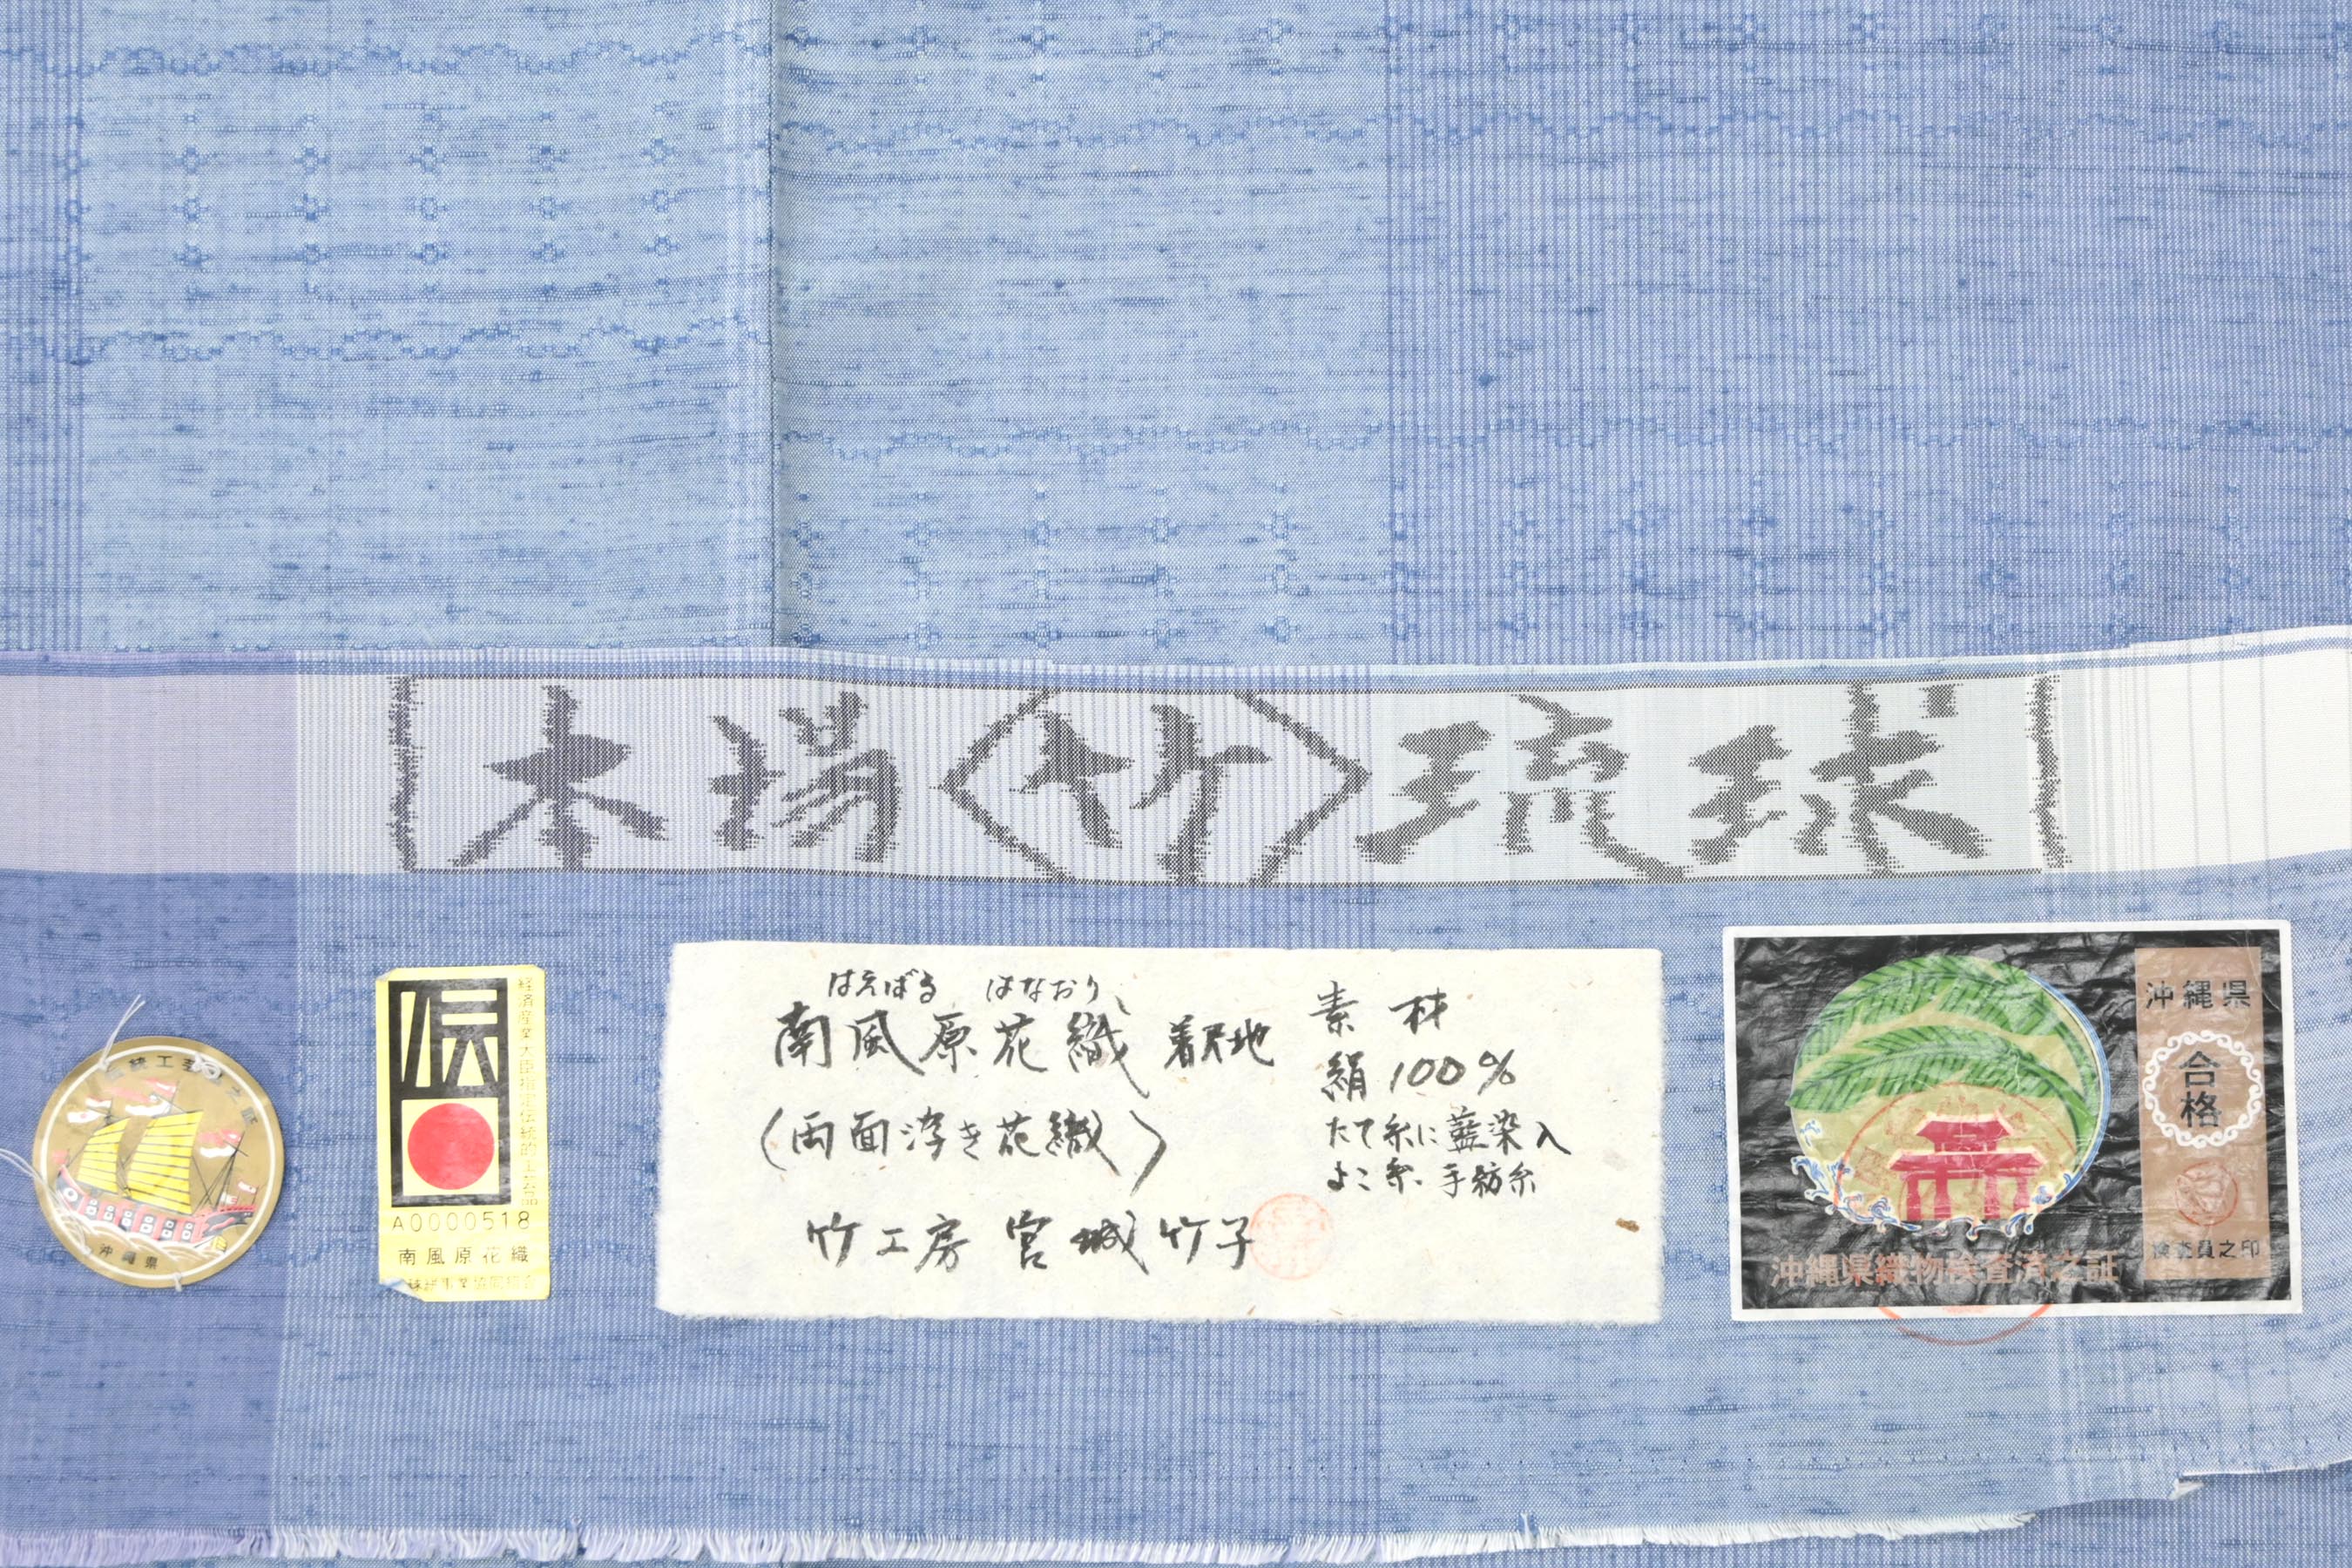 本場 竹 琉球
伝統工芸品之証
沖縄県
伝
経済産業大臣指定伝統的工芸品
A0000518
南風原花織
琉球絣事業協同組合
はえばる はなおり
南風原花織 着尺地
(両面浮き花織)
竹工房 宮城竹子
素材
絹100%
たて糸に藍染入
よこ糸. 手紡糸
沖縄県
合格
検査員之印
沖縄県織物検査済之証